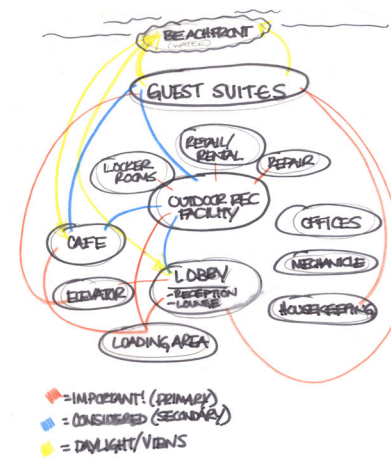 BEACHFRONT
(WATER)
GUEST SUITES
RETAIL/
RENTAL
LOCKER
ROOMS
REPAIR
OUTDOOR REC
FACILITY
OFFICES
CAFE
MECHANICLE
LOBBY
-RECEPTION
-LOUNGE
ELEVATOR
HOUSEKEEPING
LOADING AREA
=IMPORTANT! (PRIMARY)
=CONSIDERED (SECONDARY)
=DAYLIGHT/VIEWS